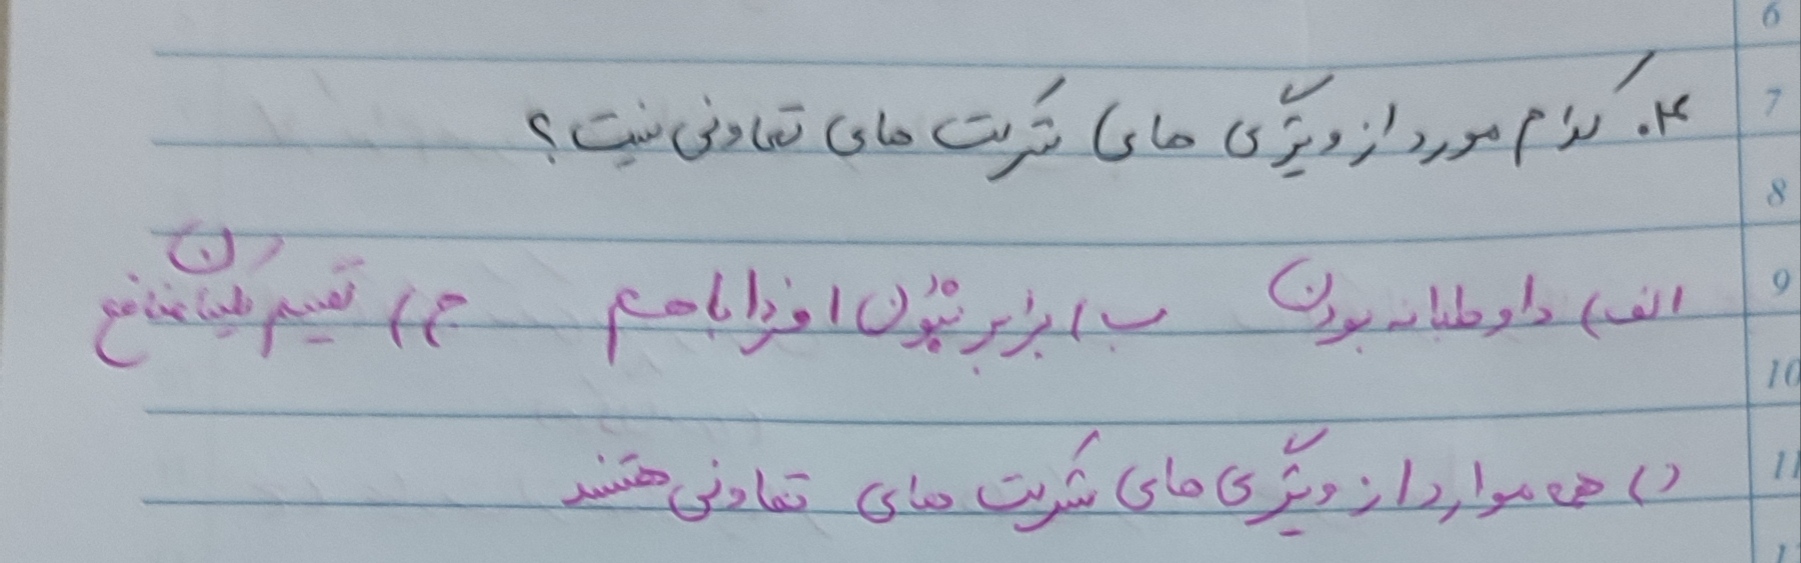 6
7
۴. کدام مورد از ویژگی های شرکت های تعاونی نیست؟
8
9
الف) داوطلبانه بودن ب) برابر نبودن افراد با هم ج) تقسیم منافع
10
11
د) همه موارد از ویژگی های شرکت های تعاونی هستند